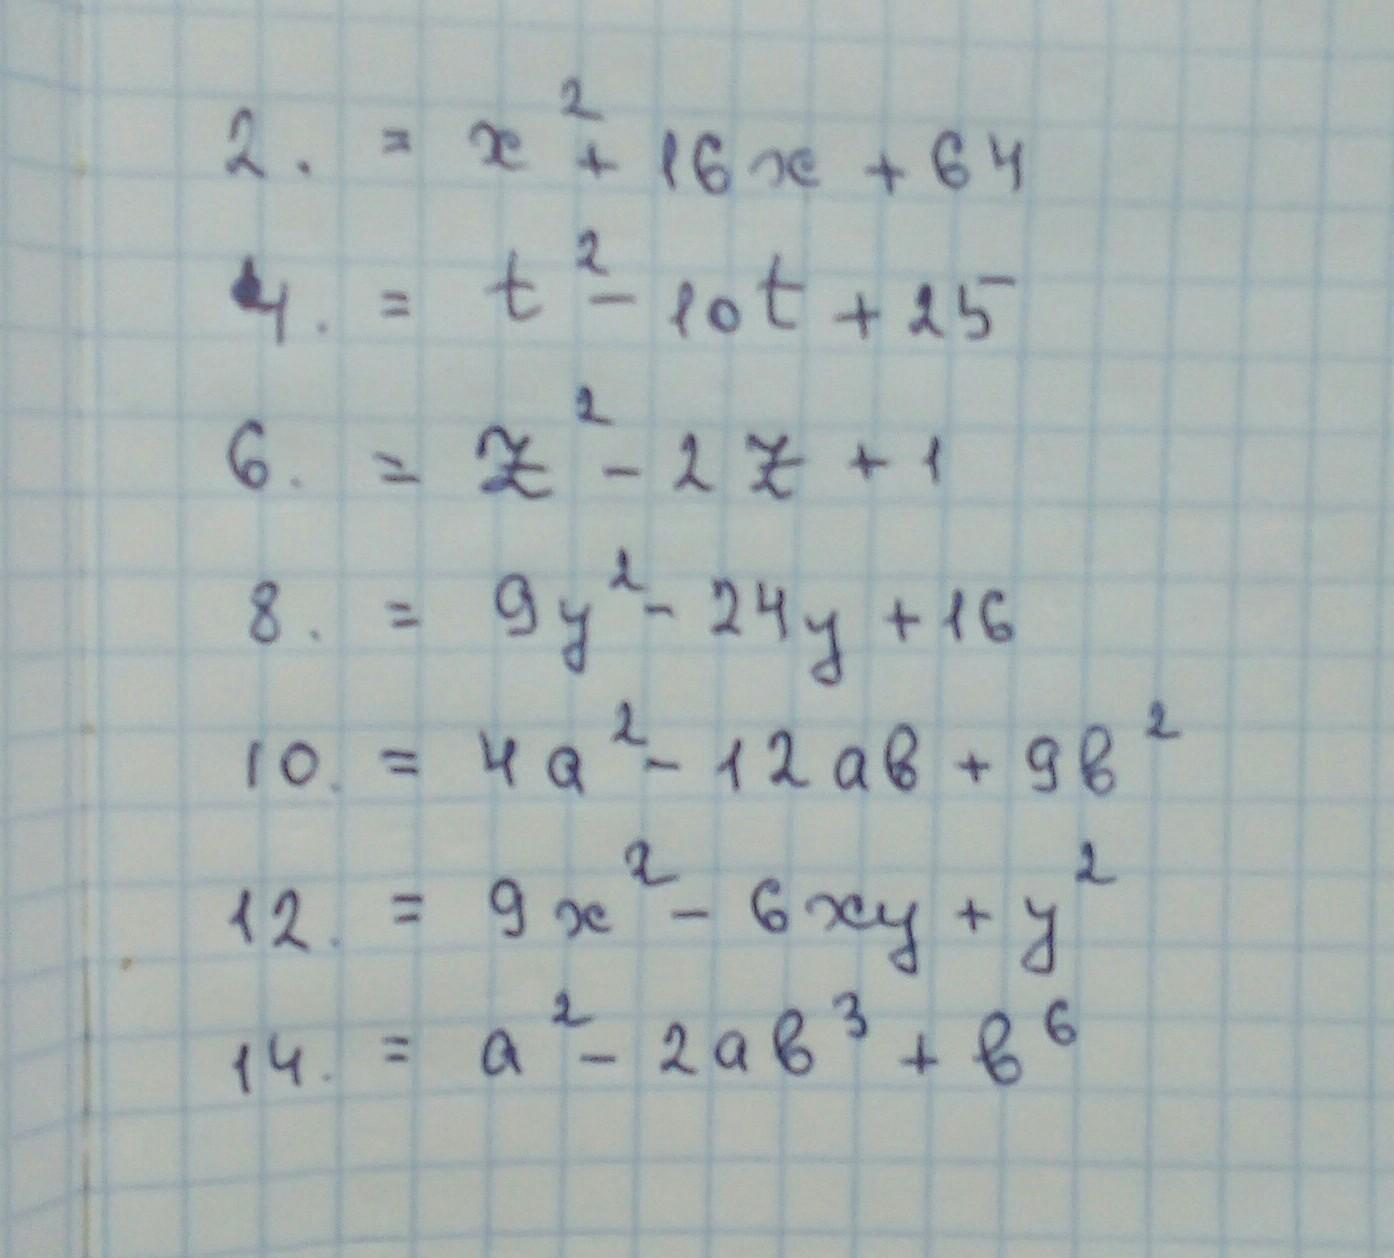 2. = x² + 16x + 64
4. = t² - 10t + 25
6. = z² - 2z + 1
8. = 9y² - 24y + 16
10. = 4a² - 12ab + 9b²
12. = 9x² - 6xy + y²
14. = a² - 2ab³ + b⁶